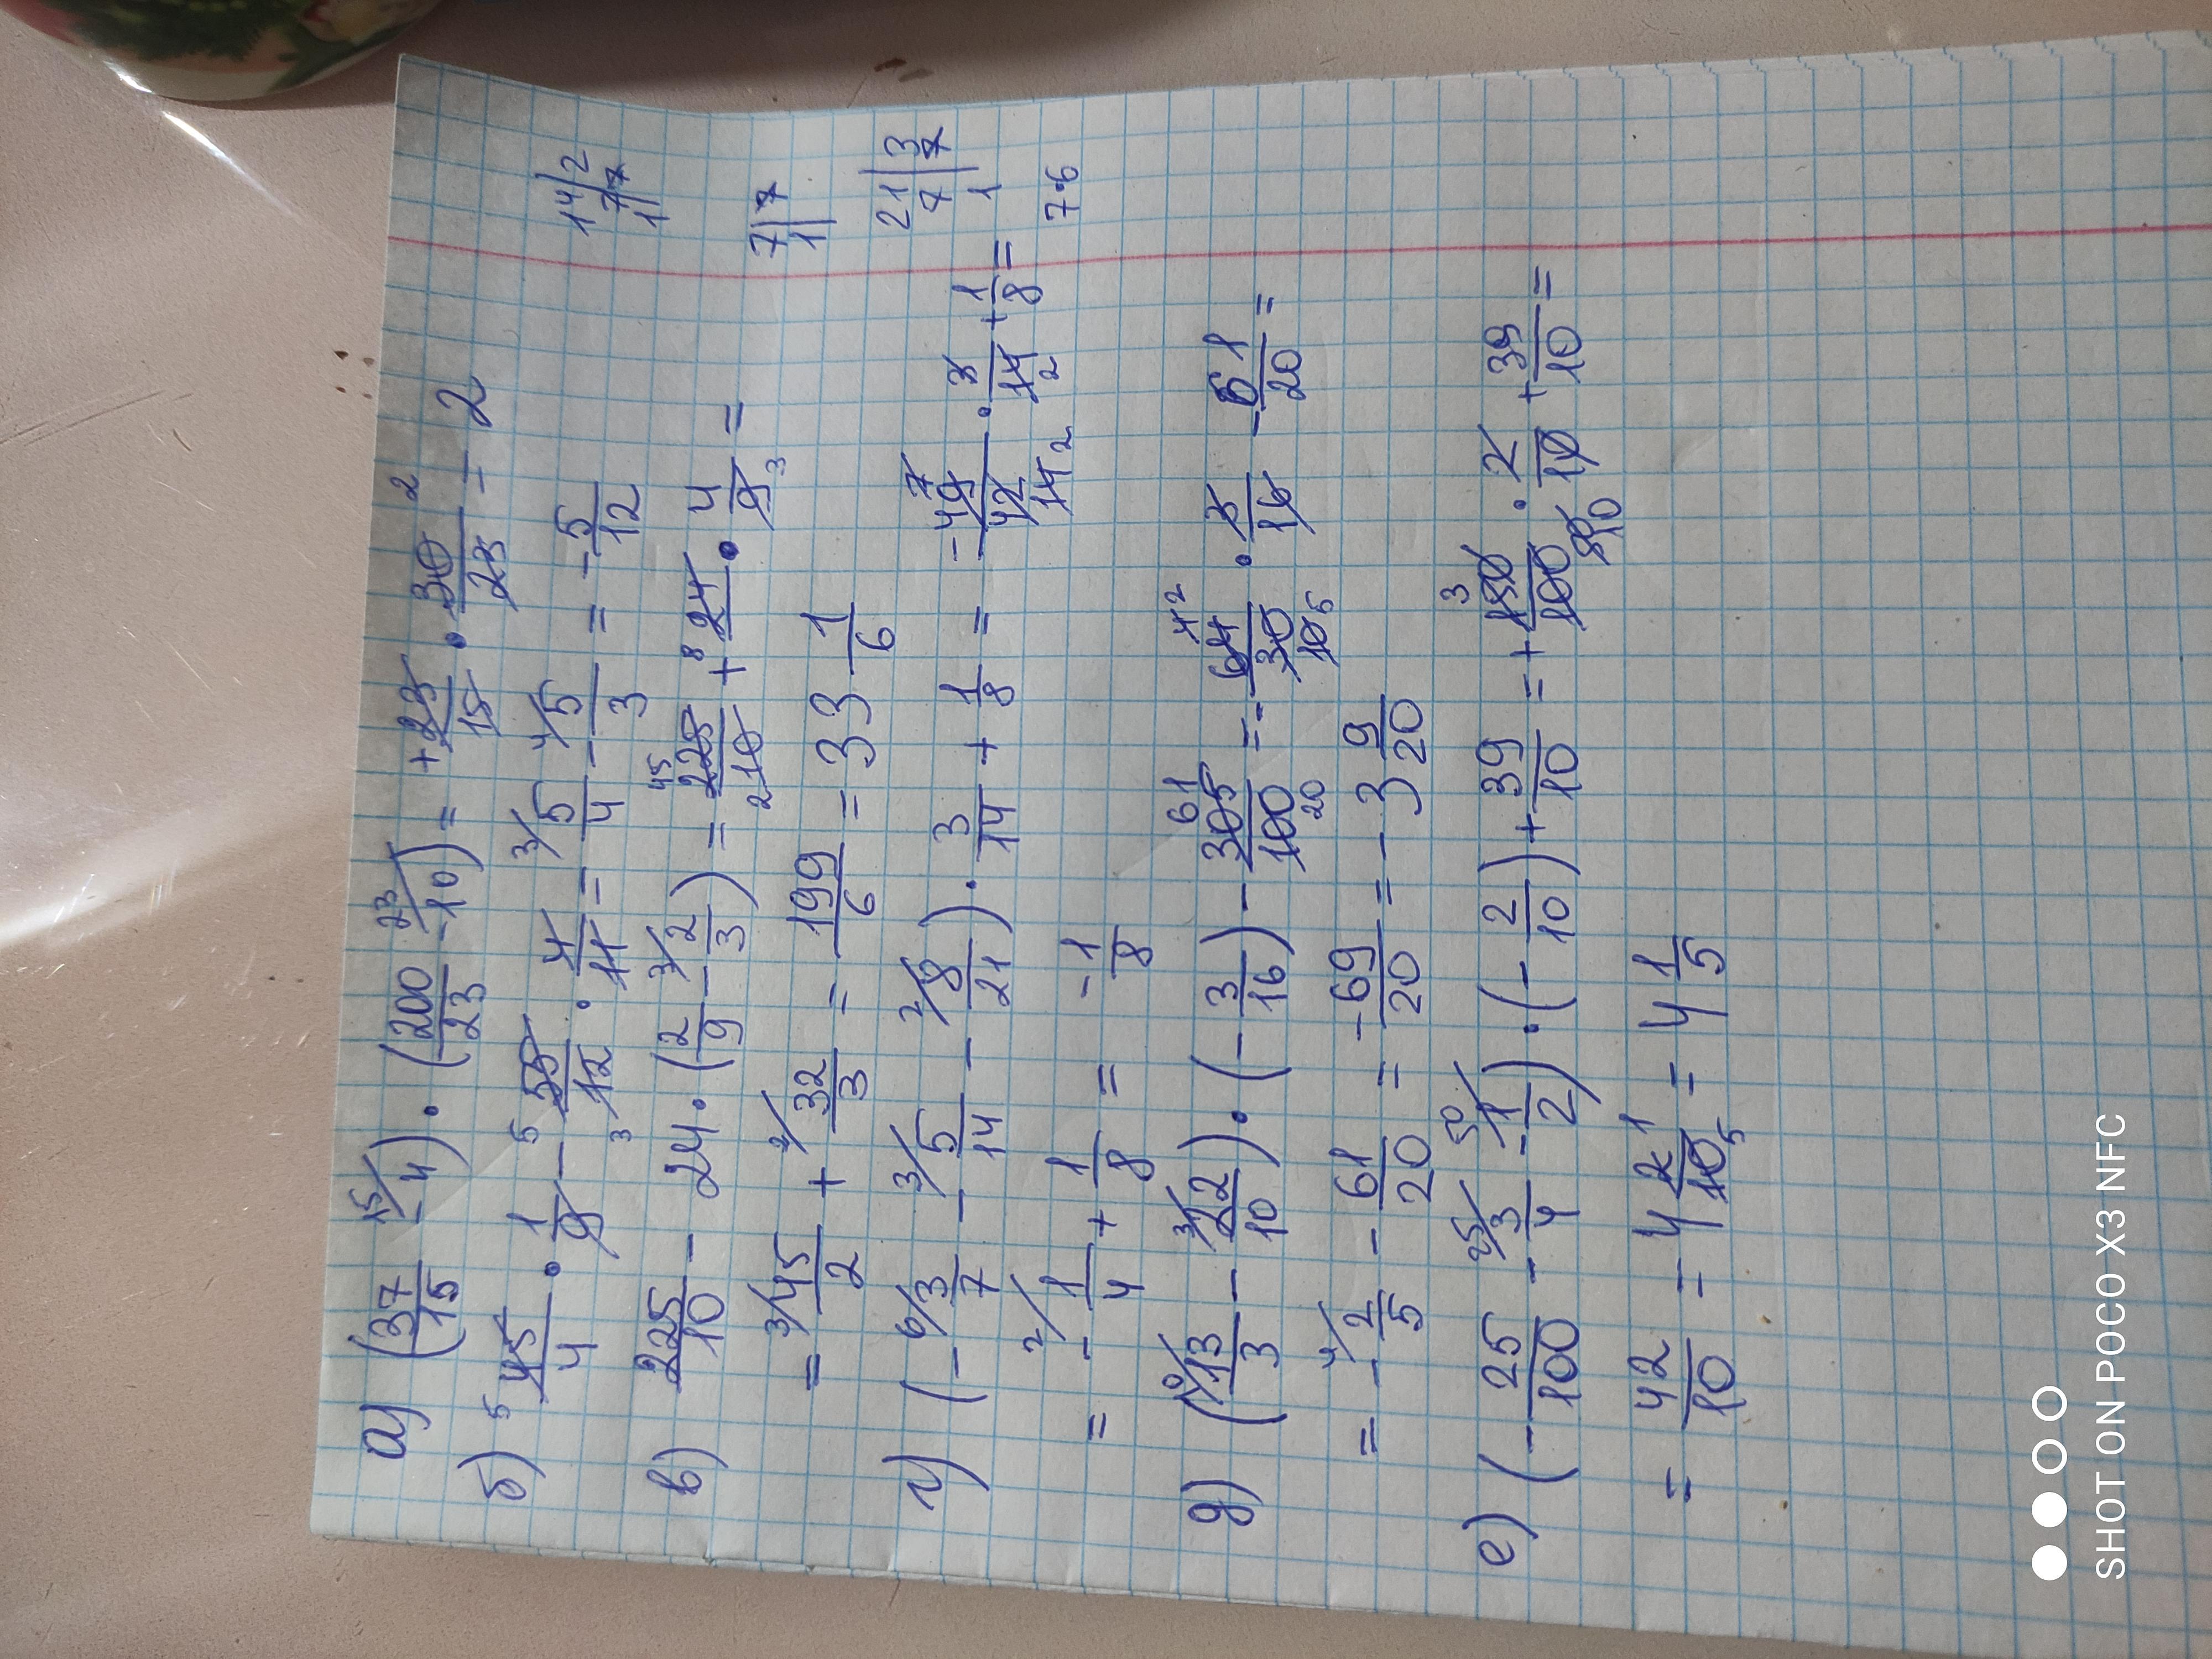 а) (37/15 - 4 15/) · (200/23 - 10 23/) = + 23/15 · 30/23 2 = 2
б) 5 45/4 · 1/9 - 5 55/12 3 · 4/11 = 3/ 5/4 - 4/ 5/3 = - 5/12
в) 225/10 - 24 · (2/9 - 3/ 2/3) = 45 225/10 2 + 8 24 · 4/9 3 =
= 3/ 45/2 + 2/ 32/3 = 199/6 = 33 1/6
г) (- 6/ 3/7 - 3/ 5/14 - 2/ 8/21) · 3/14 + 1/8 = - 49 7/42 14 2 · 3/14 2 + 1/8 =
= - 2/ 1/4 + 1/8 = - 1/8
д) (10/ 13/3 - 3/ 22/10) · (- 3/16) - 305 61/100 20 = - 64 4 2/30 10 5 · 3/16 - 61/20 =
= - 4/ 2/5 - 61/20 = - 69/20 = - 3 9/20
е) (- 25/100 - 25/ 3/4 - 50/ 1/2) · (- 2/10) + 39/10 = + 3 150/100 10 · 2/10 + 39/10 =
= 42/10 = 4 2 1/10 5 = 4 1/5
14 | 2
7 | 7
1 |
7 | 7
1 |
21 | 3
7 | 7
1
7·6
SHOT ON POCO X3 NFC